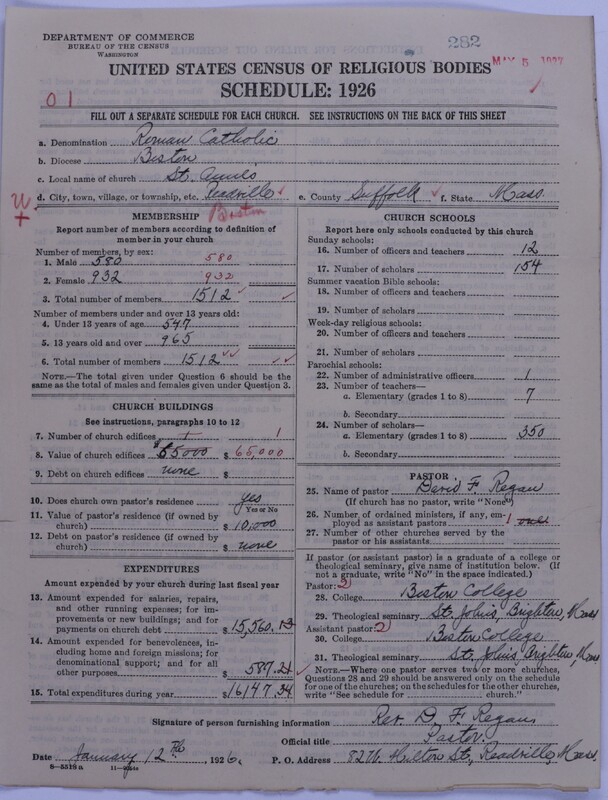 DEPARTMENT OF COMMERCE
BUREAU OF THE CENSUS
WASHINGTON
282
MAY 5 1927
UNITED STATES CENSUS OF RELIGIOUS BODIES
SCHEDULE: 1926
01
FILL OUT A SEPARATE SCHEDULE FOR EACH CHURCH. SEE INSTRUCTIONS ON THE BACK OF THIS SHEET
a. Denomination Roman Catholic
b. Diocese Boston
c. Local name of church St. Anne's
d. City, town, village, or township, etc. Readville e. County Suffolk f. State Mass.
Boston
MEMBERSHIP
Report number of members according to definition of
member in your church
Number of members, by sex:
1. Male 580 580
2. Female 932 932
3. Total number of members 1512
Number of members under and over 13 years old:
4. Under 13 years of age 547
5. 13 years old and over 965
6. Total number of members 1512
NOTE.—The total given under Question 6 should be the
same as the total of males and females given under Question 3.
CHURCH BUILDINGS
See instructions, paragraphs 10 to 12
7. Number of church edifices 1 1
8. Value of church edifices $65000 $ 65,000
9. Debt on church edifices none $
10. Does church own pastor's residence? yes
Yes or No
11. Value of pastor's residence (if owned by
church) $ 10,000
12. Debt on pastor's residence (if owned by
church) $ none
EXPENDITURES
Amount expended by your church during last fiscal year
13. Amount expended for salaries, repairs,
and other running expenses; for im-
provements or new buildings; and for
payments on church debt $ 15,560.13
14. Amount expended for benevolences, in-
cluding home and foreign missions; for
denominational support; and for all
other purposes $ 587.21
15. Total expenditures during year $ 16147.34
CHURCH SCHOOLS
Report here only schools conducted by this church
Sunday schools:
16. Number of officers and teachers 12
17. Number of scholars 154
Summer vacation Bible schools:
18. Number of officers and teachers
19. Number of scholars
Week-day religious schools:
20. Number of officers and teachers
21. Number of scholars
Parochial schools:
22. Number of administrative officers 1
23. Number of teachers—
a. Elementary (grades 1 to 8) 7
b. Secondary
24. Number of scholars—
a. Elementary (grades 1 to 8) 350
b. Secondary
PASTOR
25. Name of pastor David F. Regan
(If church has no pastor, write "None")
26. Number of ordained ministers, if any, em-
ployed as assistant pastors 1 one
27. Number of other churches served by the
pastor or his assistants
If pastor (or assistant pastor) is a graduate of a college or
theological seminary, give name of institution below. (If
not a graduate, write "No" in the space indicated.)
Pastor: 2
28. College Boston College
29. Theological seminary St. John's, Brighton, Mass
Assistant pastor: 2
30. College Boston College
31. Theological seminary St. John's, Brighton, Mass
NOTE.—Where one pastor serves two or more churches,
Questions 28 and 29 should be answered only on the schedule
for one of the churches; on the schedules for the other churches,
write "See schedule for church."
Signature of person furnishing information Rev. D. F. Regan
Official title Pastor.
Date January 12th, 1926. P. O. Address Milton St., Readville, Mass.
8—5518a